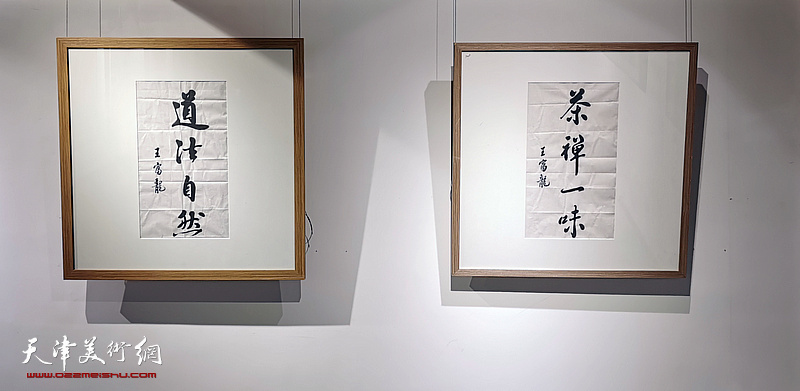 道法自然
王富龍
茶禅一味
王富龍
天津美術網
www.022meishu.com